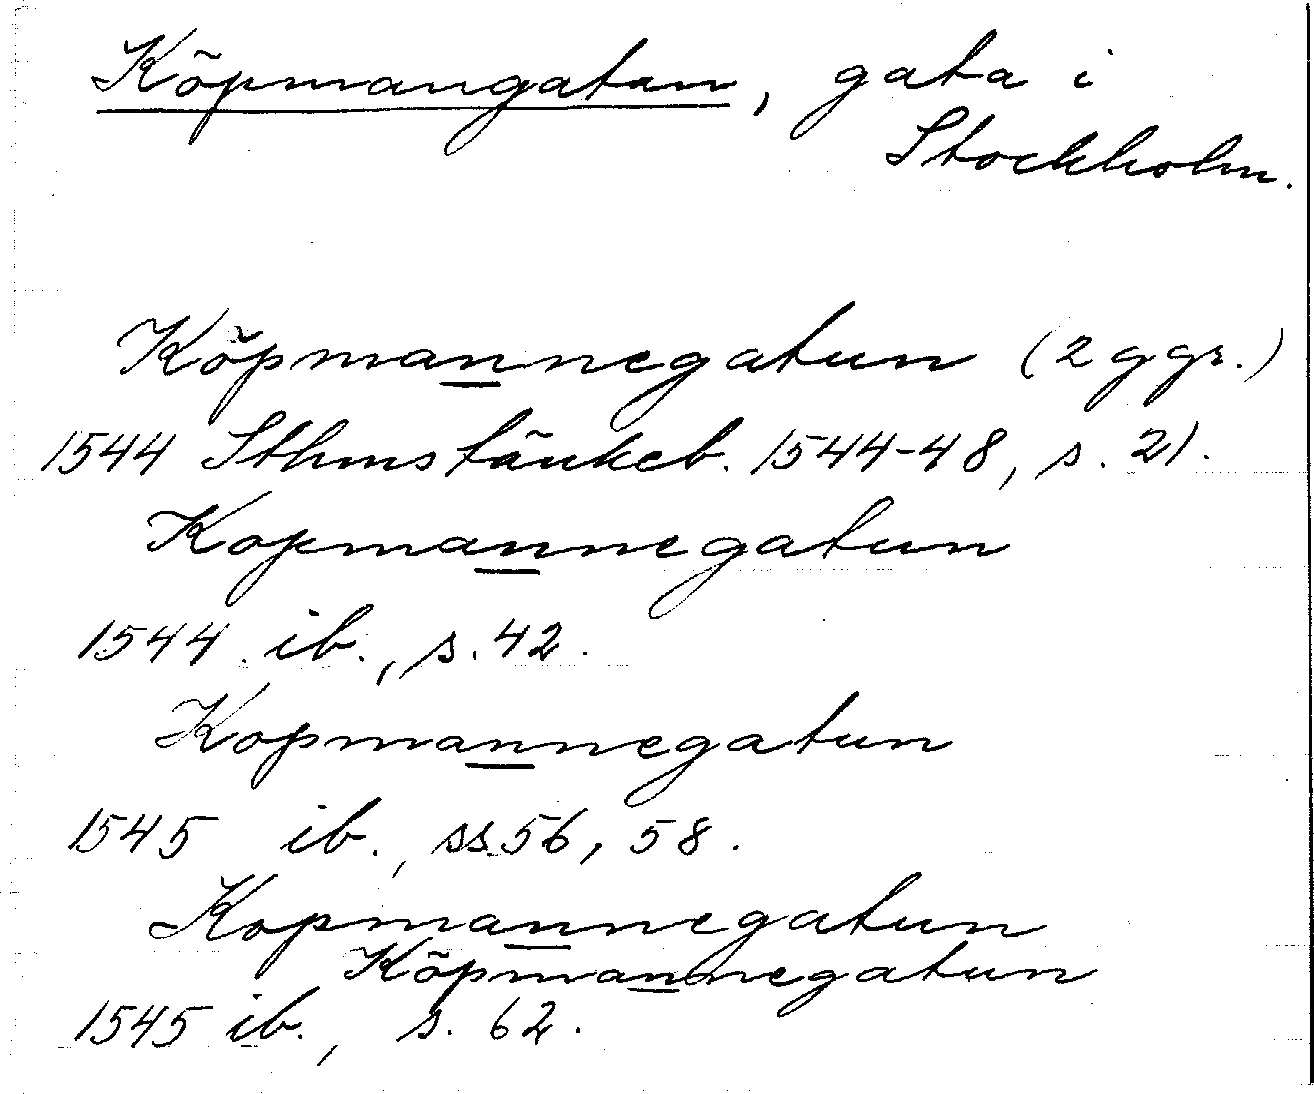 Köpmangatan, gata i
Stockholm.
Köpmannegatun (2 ggr.)
1544 Sthms tänkeb. 1544-48, s. 21.
Kopmannegatun
1544 ib., s. 42.
Kopmannegatun
1545 ib., ss. 56, 58.
Kopmannegatun
Köpmannegatun
1545 ib., s. 62.